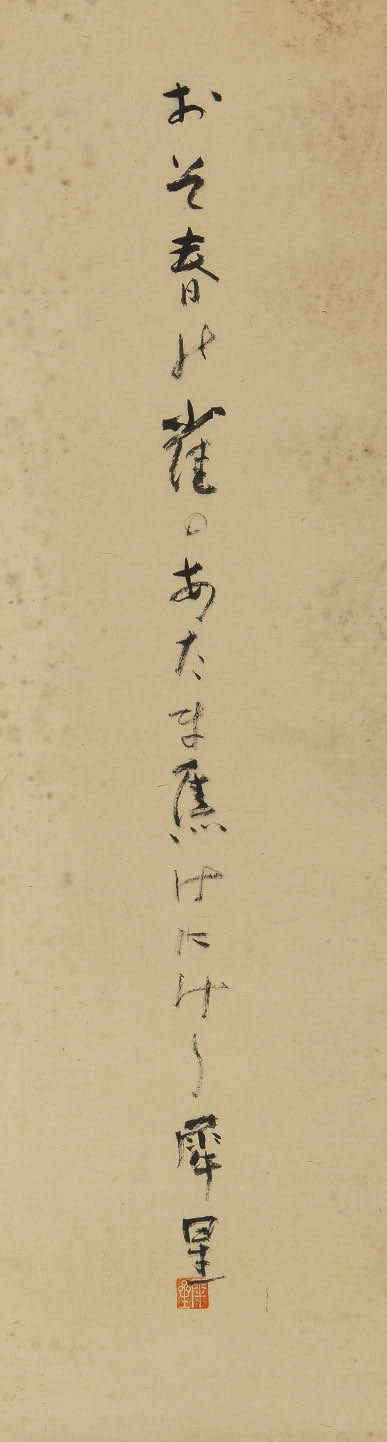 おそ春の雀のあたま焦けにけり 犀星